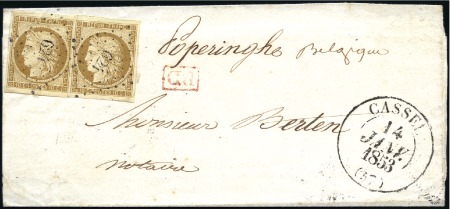 Poperinghe Belgique
P.D.
Monsieur Berten
notaire
CASSEL
14
JANV.
1853
(57)